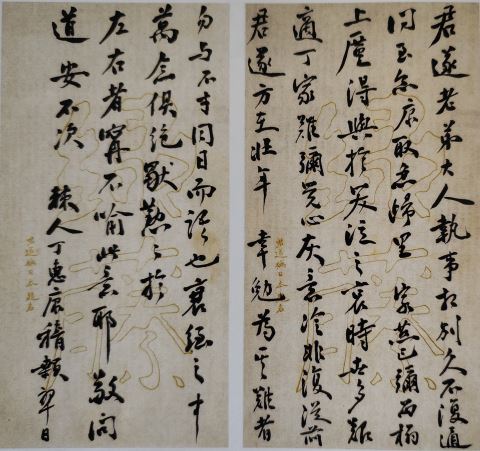 君遂老弟大人執事相別久不復通
問至念康取急歸里 家慈已彌留榻
上廑得與於哭泣之哀時世多艱
適丁家難彌覺心灰意冷非復從前
君遂方在壯年 幸勉為其難者
勿与不才同日而語也衰絰之中
萬念俱絕獨懃懃於
左右者甯不喻此意耶 敬問
道安不次 棘人丁惠康稽顙 日